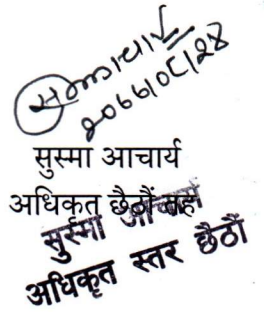 २०७७।०८।२४
सुस्मा आचार्य
अधिकृत छैठौं तह
सुस्मा आचार्य
अधिकृत स्तर छैठौं